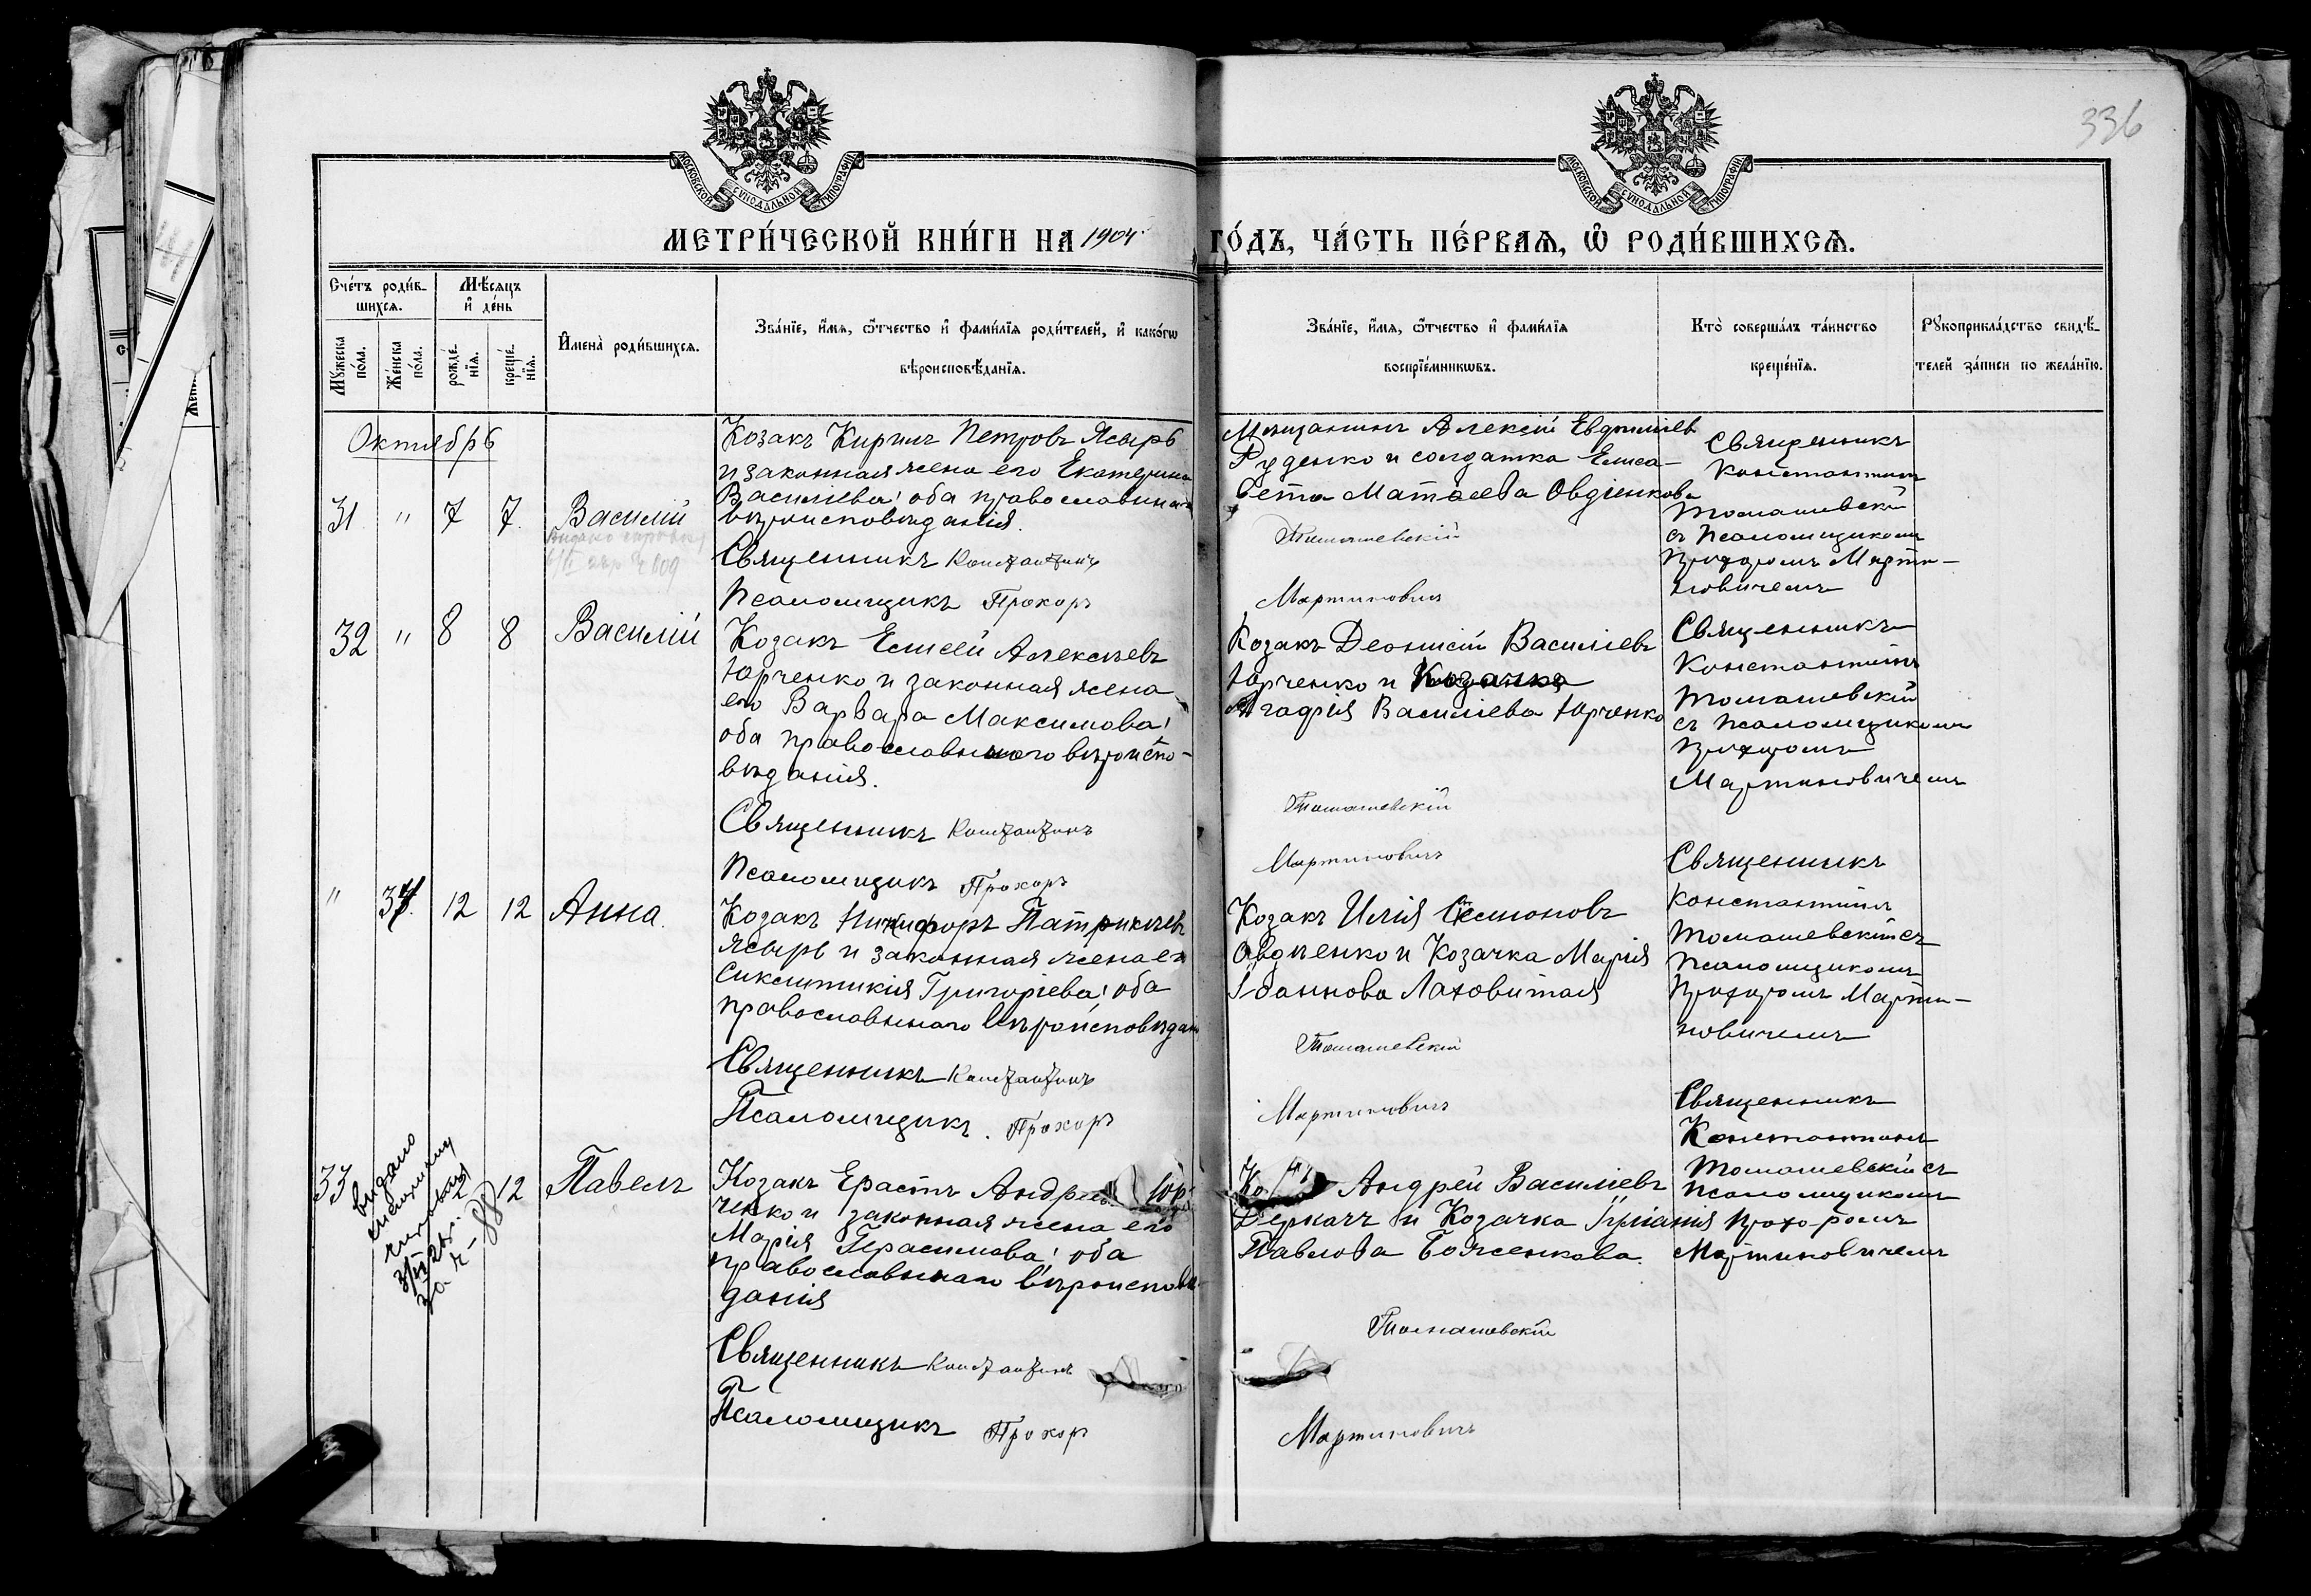 336
МОСКОВСКОЙ СѴНОДАЛЬНОЙ ТИПОГРАФІИ
МОСКОВСКОЙ СѴНОДАЛЬНОЙ ТИПОГРАФІИ
МЕТРИ́ЧЕСКОЙ КНИ́ГИ НА 1904 ГО́ДЪ, ЧА́СТЬ ПЕ́РВАѦ, Ѡ҆ РОДИ́ВШИХСѦ.
Сче́тъ роди́в-
шихсѧ.
Мꙋжеска по́ла.
Же́нска по́ла.
Мѣ́сяцъ и҆ де́нь
рожде́-
нїѧ.
креще́-
нїѧ.
И҆мена̀ роди́вшихсѧ.
Зва́нїе, и҆́мѧ, ѻ҆́тчество и҆ фами́лїѧ роди́телей, и҆ како́гѡ
вѣроисповѣ́данїѧ.
Зва́нїе, и҆́мѧ, ѻ҆́тчество и҆ фами́лїѧ
воспрїе́мникѡвъ.
Кто̀ соверша́лъ та́инство
креще́нїѧ.
Рꙋкоприкла́дство свидѣ́-
телей за́писи по жела́нїю.
Октябрь
31 " 7 7. Василій
Козакъ Кирилъ Петровъ Ясырь
и законная жена его Екатерина
Василіева; оба православнаго
вѣроисповѣданія.
Священникъ Константинъ
Псаломщикъ Прохоръ
Мѣщанинъ Алексій
Руденко и солдатка Елиса-
вета Матѳеева Овдіенкова
Томашевскій
Мартиновичъ
Священникъ
Константинъ
Томашевскій
съ Псаломщикомъ
Прохоромъ Марти-
новичемъ
32 " 8 8 Василій
Козакъ Елисей Алексѣевъ
Юрченко и законная жена
его Варвара Максимова;
оба православнаго вѣроиспо-
вѣданія.
Священникъ Константинъ
Псаломщикъ Прохоръ
Козакъ Деонисій Василіевъ
Юрченко и Козачка
Агафія Василіева Юрченко
Томашевскій
Мартиновичъ
Священникъ
Константинъ
Томашевскій
съ Псаломщикомъ
Прохоромъ
Мартиновичемъ
" 12 12 Анна.
Козакъ Никифоръ Патрикѣевъ
Ясырь и законная жена его
Григоріева; оба
православнаго вѣроисповѣдан
Священникъ Константинъ
Псаломщикъ. Прохоръ
Козакъ Илія Семоновъ
Овдіенко и Козачка Марія
Іоаннова
Томашевскій
Мартиновичъ
Священникъ
Константинъ
Томашевскій съ
Псаломщикомъ
Прохоромъ Марти-
новичемъ
33 12 Павелъ
видано
Козакъ Ерастъ Юр-
ченко и законная жена его
Марія Герасимова; оба
православнаго вѣроисповѣ-
данія
Священникъ Константинъ
Псаломщикъ Прохоръ
Андрей Василіевъ
Деркачъ и Козачка
Павлова Боженкова.
Томашевскій
Мартиновичъ
Священникъ
Константинъ
Томашевскій съ
Псаломщикомъ
Прохоромъ
Мартиновичемъ